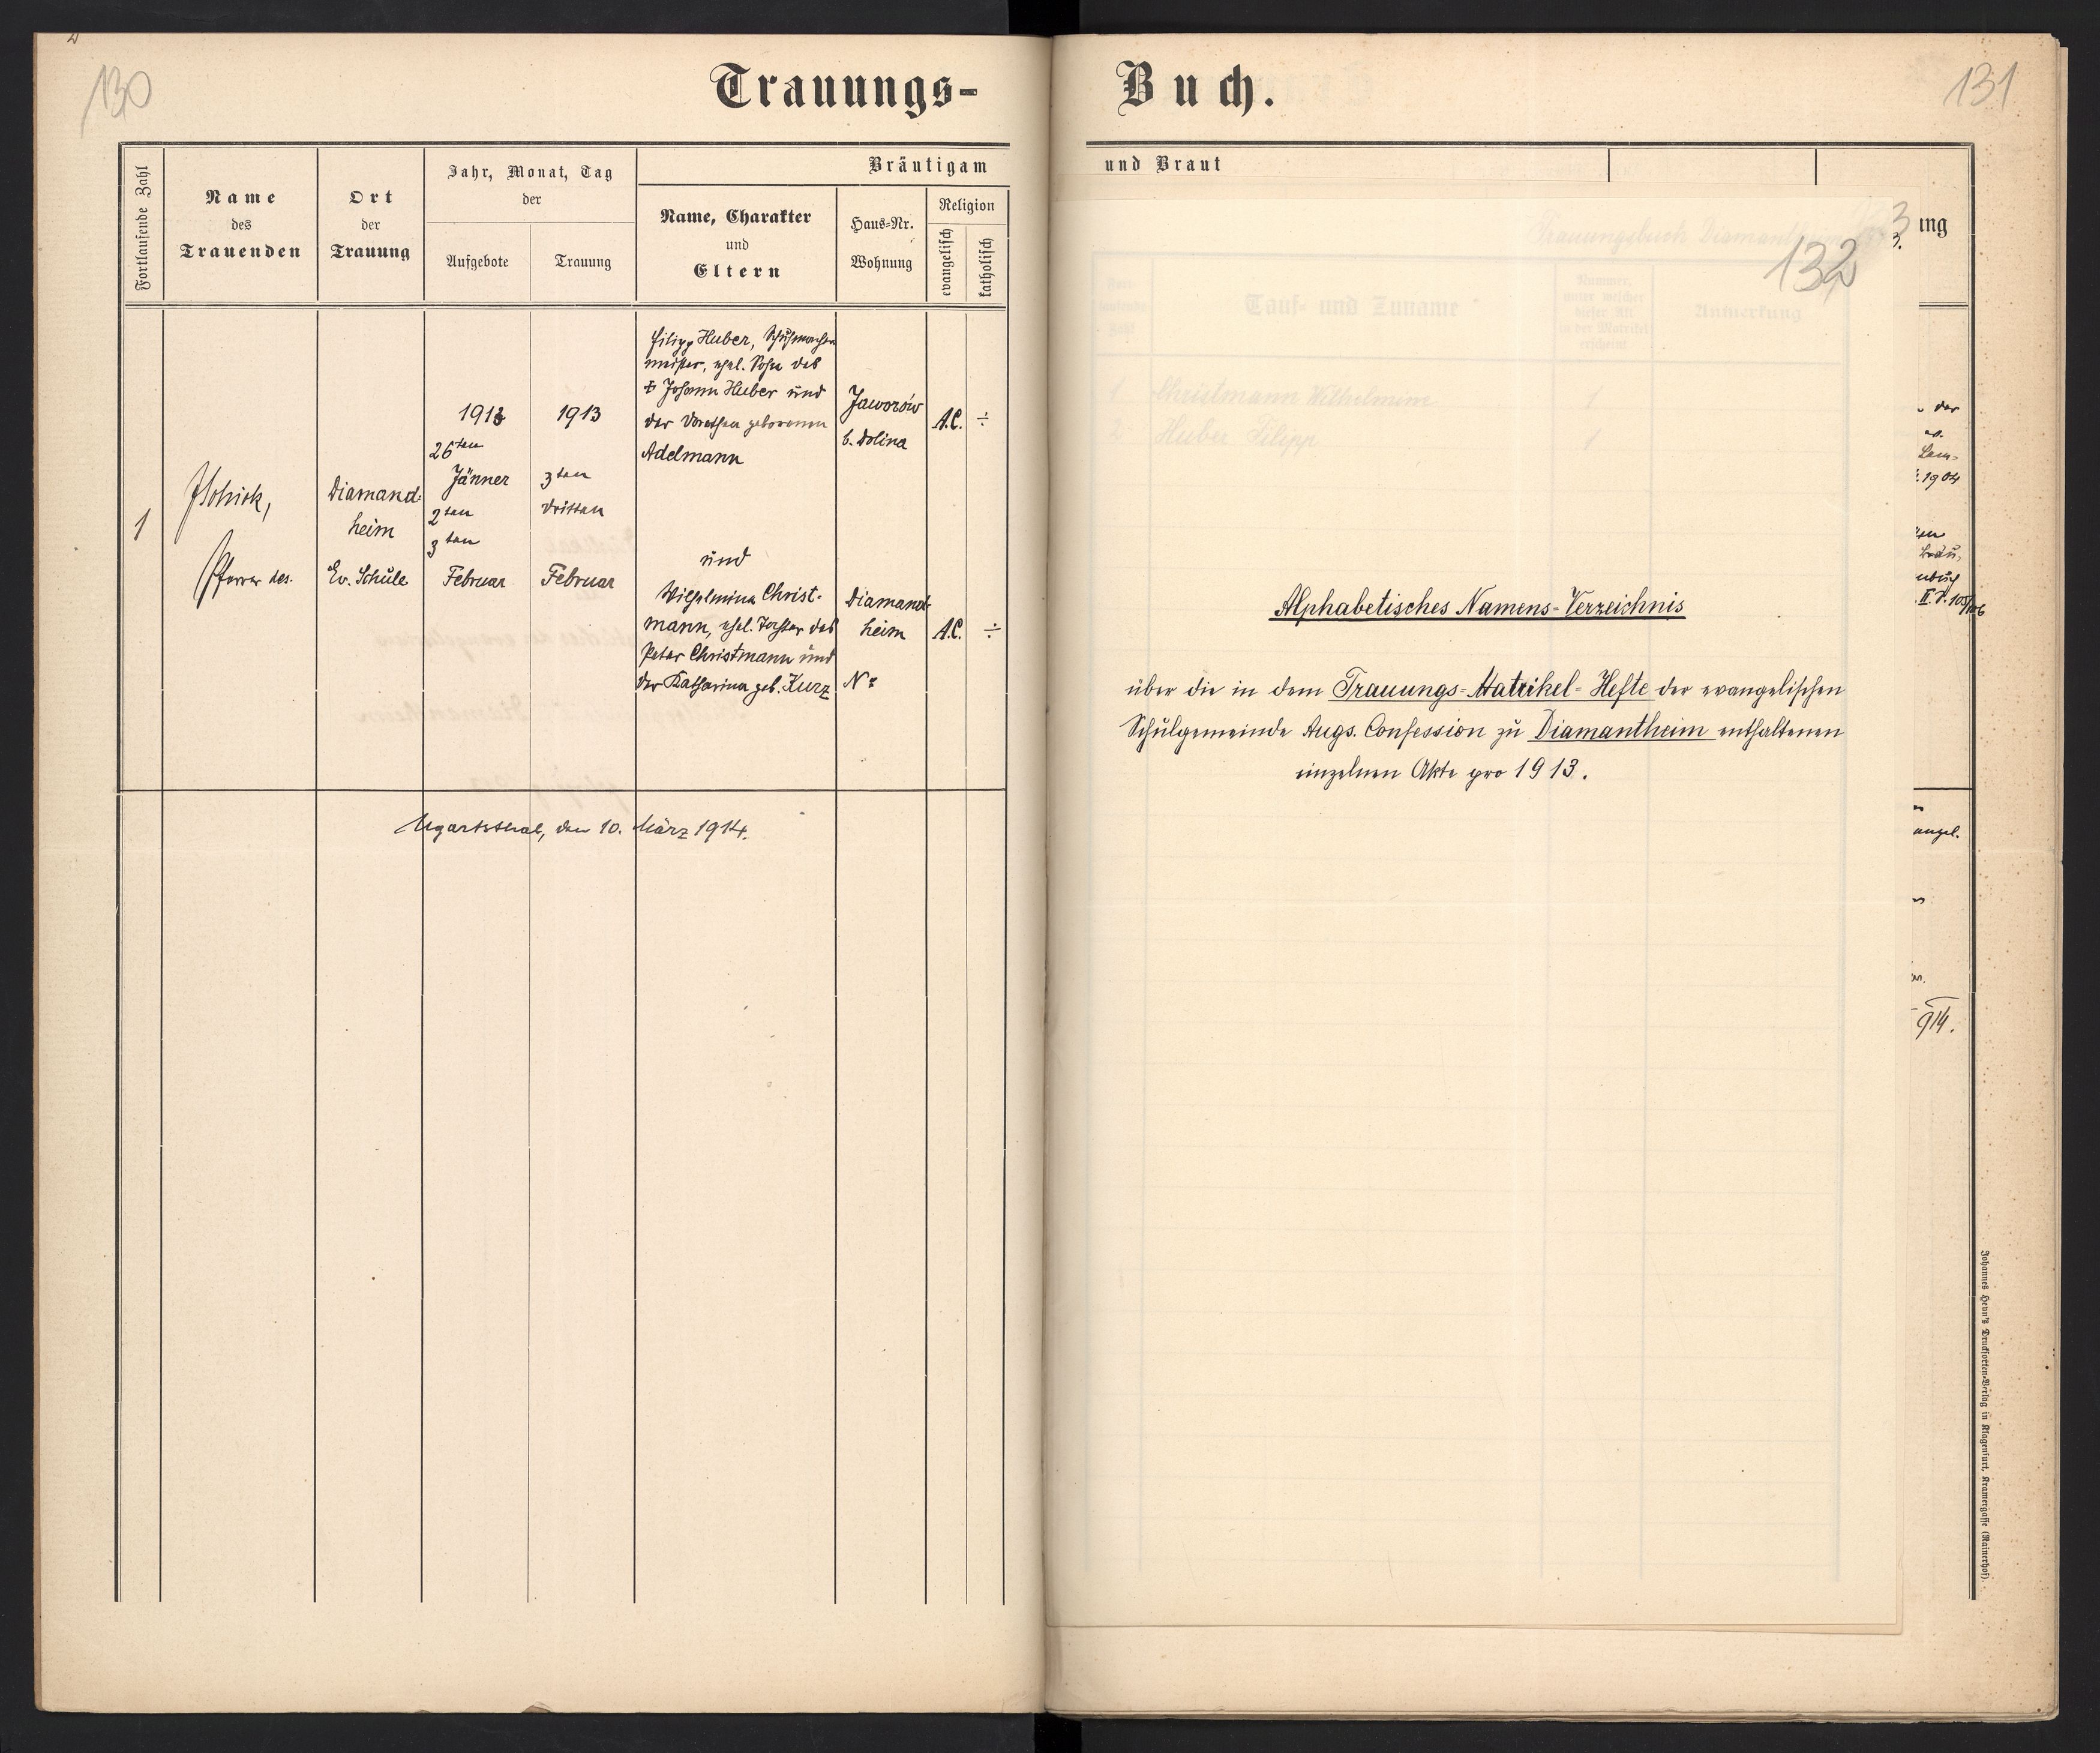 130
Trauungs-
Fortlaufende Zahl
Name
des
Trauenden
Ort
der
Trauung
Jahr, Monat, Tag
der
Aufgebote
Trauung
Bräutigam
Name, Charakter
und
Eltern
Haus-Nr.
Wohnung
Religion
evangelisch
katholisch
1
Pfarrer
Diamand-
heim
Ev. Schule
1913
26ten
Jänner
2ten
3ten
Februar
1913
3ten
dritten
Februar
Filipp Huber, Schuhmacher
meister, ehel. Sohn des
† Johann Huber und
der Dorothea geborenen
Adelmann
Jaworów
b. Dolina
A.C.
÷
und
Wilhelmina Christ-
mann, ehel. Tochter des
Peter Christmann und
der Katharina geb. Kurz
Diamand-
heim
No
A.C.
÷
Ugartsthal, den 10. März 1914.
Buch.
131
und Braut
ng
132
Trauungsbuch
Tauf- und Zuname
Nummer,
unter welcher
dieser Akt
in der Matrikel
erscheint
Anmerkung
1 Christmann Wilhelmine 1
2 Huber Filipp 1
Alphabetisches Namens-Verzeichnis
über die in dem Trauungs-Matrikel-Hefte der evangelischen
Schulgemeinde Augs. Confession zu Diamantheim enthaltenen
einzelnen Akte pro 1913.
der
1904
angel.
914.
Johannes Heyn's Drucksorten-Verlag in Klagenfurt, Kramergasse (Rainerhof).